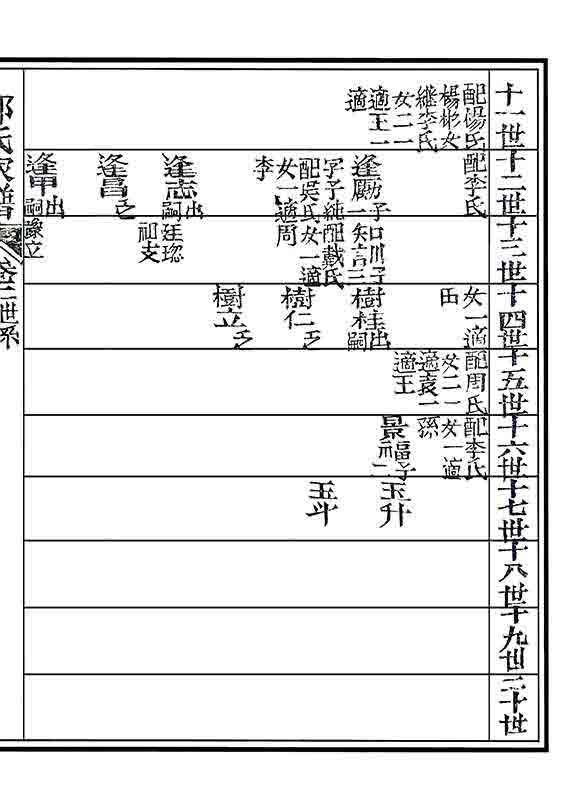 十一世
十二世
十三世
十四世
十五世
十六世
十七世
十八世
十九世
二十世
配楊氏
楊彬女
繼李氏
女二一
適王一
適
配李氏
逢勵子一
字子純配戴氏
配吳氏女一適
女一適周
李
逢志出嗣廷琮
逢昌
逢甲出嗣
知言子三
口川子
初支
女一適
田
樹桂出嗣
樹仁
樹立
配周氏
女二一
適袁一
適王
配李氏
女一適
孫
景福子二
玉升
玉斗
氏家譜
卷二世系